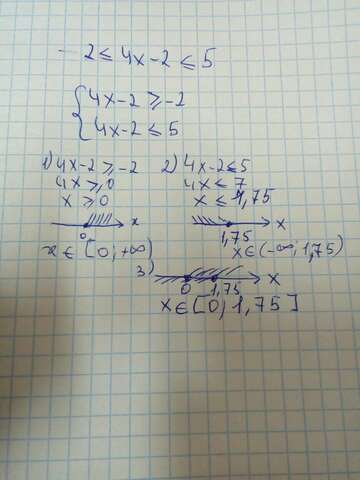 -2 ≤ 4x-2 ≤ 5
{ 4x-2 ≥ -2
4x-2 ≤ 5
1) 4x-2 ≥ -2
4x ≥ 0
x ≥ 0
0 x
x ∈ [0; +∞)
2) 4x-2 ≤ 5
4x ≤ 7
x ≤ 1,75
1,75 x
x ∈ (-∞; 1,75)
3)
0 1,75 x
x ∈ [0; 1,75]